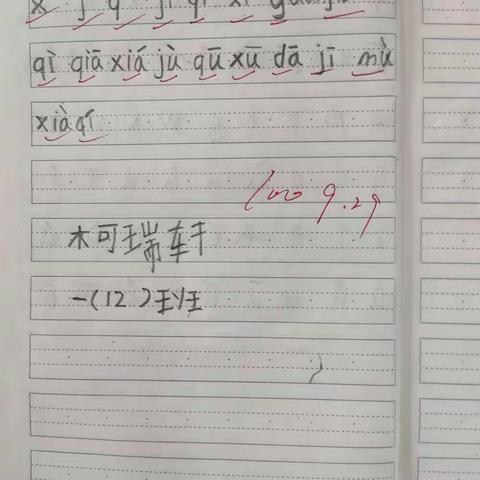 qì qiā xiá jù qū xū dā jī mù
xià qí
100 9.29
柯瑞轩
一(12)班